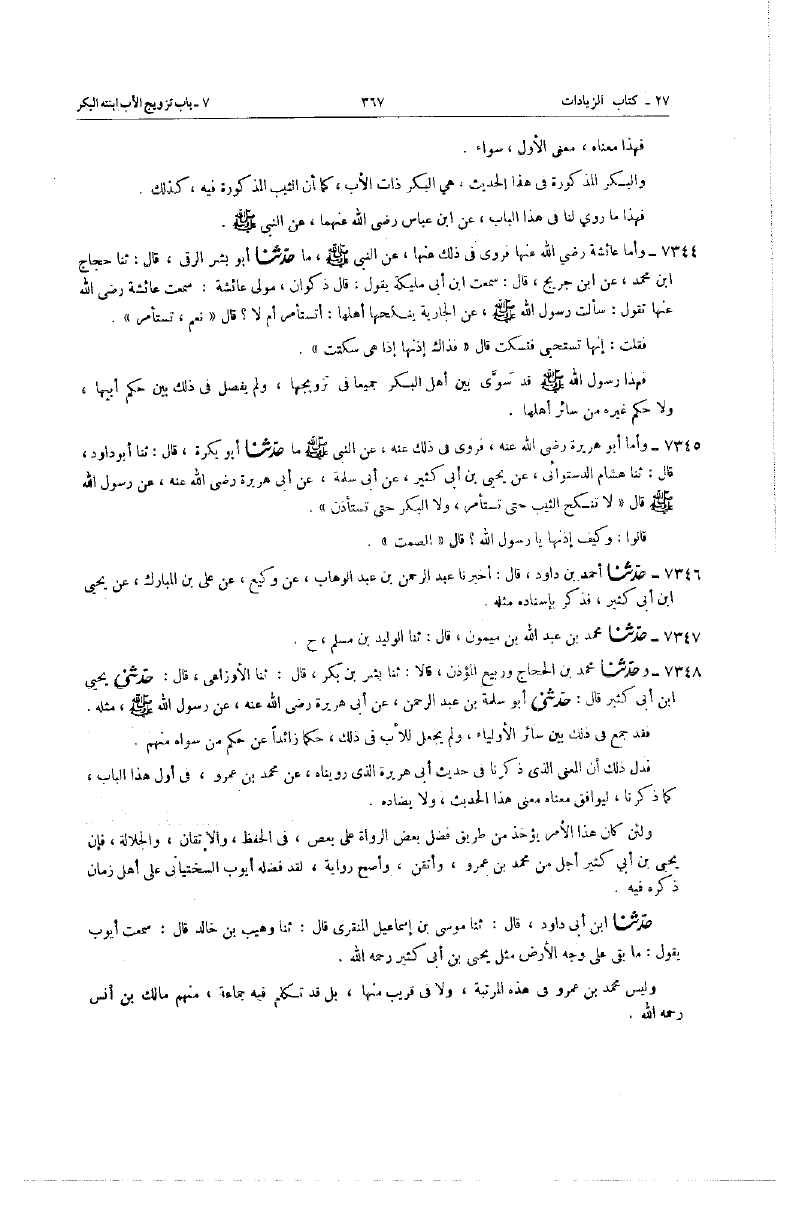 ٢٧ - كتاب الزيادات ٣٦٧ ٧ - باب تزويج الأب ابنته البكر
فهذا معناه ، معنى الأول ، سواء .
والبكر المذكورة فى هذا الحديث ، هي البكر ذات الأب ، كما أن الثيب المذكورة فيه ، كذلك .
فهذا ما روي لنا فى هذا الباب ، عن ابن عباس رضى الله عنهما ، عن النبي ﷺ .
٧٣٤٤ - وأما عائشة رضي الله عنها فروى فى ذلك عنها ، عن النبي ﷺ ، ما حدثنا أبو بشر الرقى ، قال : ثنا حجاج
ابن محمد ، عن ابن جريج ، قال : سمعت ابن أبى مليكة يقول : قال ذكوان ، مولى عائشة : سمعت عائشة رضى الله
عنها تقول : سألت رسول الله ﷺ ، عن الجارية ينكحها أهلها : أتستأمر أم لا ؟ قال « نعم ، تستأمر » .
فقلت : إنها تستحيى فتسكت قال « فذاك إذنها إذا هى سكتت » .
فهذا رسول الله ﷺ قد سوَّى بين أهل البكر جميعا فى تزويجها ، ولم يفصل فى ذلك بين حكم أبيها ،
ولا حكم غيره من سائر أهلها .
٧٣٤٥ - وأما أبو هريرة رضى الله عنه ، فروى فى ذلك عنه ، عن النبي ﷺ ما حدثنا أبو بكرة ، قال : ثنا أبو داود ،
قال : ثنا هشام الدستوائى ، عن يحيى بن أبى كثير ، عن أبى سلمة ، عن أبى هريرة رضى الله عنه ، عن رسول الله
ﷺ قال « لا تنكح الثيب حتى تستأمر ، ولا البكر حتى تستأذن » .
قالوا : وكيف إذنها يا رسول الله ؟ قال « الصمت » .
٧٣٤٦ - حدثنا أحمد بن داود ، قال : أخبرنا عبد الرحمن بن عبد الوهاب ، عن وكيع ، عن على بن المبارك ، عن يحيى
ابن أبى كثير ، فذكر بإسناده مثله .
٧٣٤٧ - حدثنا محمد بن عبد الله بن ميمون ، قال : ثنا الوليد بن مسلم ، ح .
٧٣٤٨ - و حدثنا محمد بن الحجاج وربيع المؤذن ، قالا : ثنا بشر بن بكر ، قال : ثنا الأوزاعى ، قال : حدثني يحيى
ابن أبى كثير قال : حدثني أبو سلمة بن عبد الرحمن ، عن أبى هريرة رضى الله عنه ، عن رسول الله ﷺ ، مثله .
فقد جمع فى ذلك بين سائر الأولياء ، ولم يجعل للأب فى ذلك ، حكما زائداً عن حكم من سواه منهم .
فدل ذلك أن المعنى الذى ذكرنا فى حديث أبى هريرة الذى رويناه ، عن محمد بن عمرو ، فى أول هذا الباب ،
كما ذكرنا ، ليوافق معناه معنى هذا الحديث ، ولا يضاده .
ولئن كان هذا الأمر يؤخذ من طريق فضل بعض الرواة على بعض ، فى الحفظ ، والإتقان ، والجلالة ، فإن
يحيى بن أبي كثير أجل من محمد بن عمرو ، وأتقن ، وأصح رواية ، لقد فضله أيوب السختيانى على أهل زمان
ذكره فيه .
حدثنا ابن أبى داود ، قال : ثنا موسى بن إسماعيل المنقرى قال : ثنا وهيب بن خالد قال : سمعت أيوب
يقول : ما بقى على وجه الأرض مثل يحيى بن أبى كثير رحمه الله .
وليس محمد بن عمرو فى هذه المرتبة ، ولا فى قريب منها ، بل قد تكلم فيه جماعة ، منهم مالك بن أنس
رحمه الله .